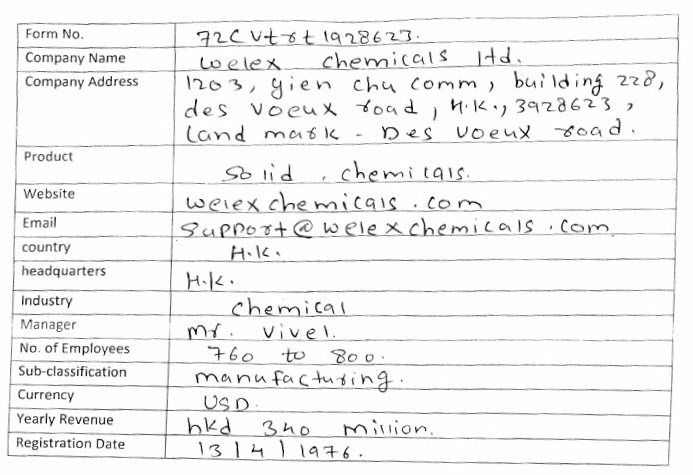 Form No. 72CVtrt1928623.
Company Name welex chemicals ltd.
Company Address 1203, yien chu comm, building 228,
des voeux road, H.K., 3928623,
Land mark - Des voeux road.
Product Solid, chemicals.
Website welexchemicals.com
Email support@welexchemicals.com
country H.K.
headquarters H.K.
Industry chemical
Manager mr. vivel.
No. of Employees 760 to 800.
Sub-classification manufacturing.
Currency USD.
Yearly Revenue hkd 340 million.
Registration Date 13/4/1976.